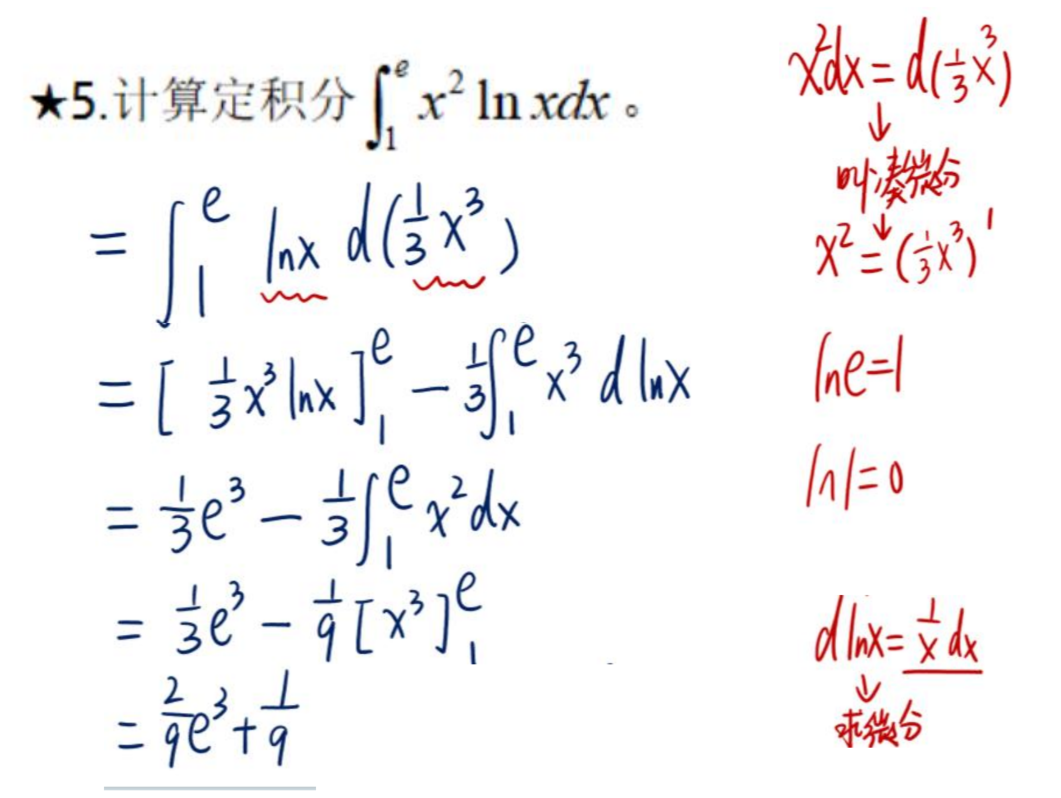 ★5.计算定积分∫₁ᵉ x² ln xdx。
= ∫₁ᵉ lnx d(1/3 x³)
= [1/3 x³ lnx]₁ᵉ − 1/3 ∫₁ᵉ x³ d lnx
= 1/3 e³ − 1/3 ∫₁ᵉ x² dx
= 1/3 e³ − 1/9 [x³]₁ᵉ
= 2/9 e³ + 1/9
x²dx = d(1/3 x³)
↓
叫凑微分
↓
x² = (1/3 x³)'
lne=1
ln1=0
d lnx = 1/x dx
↓
求微分